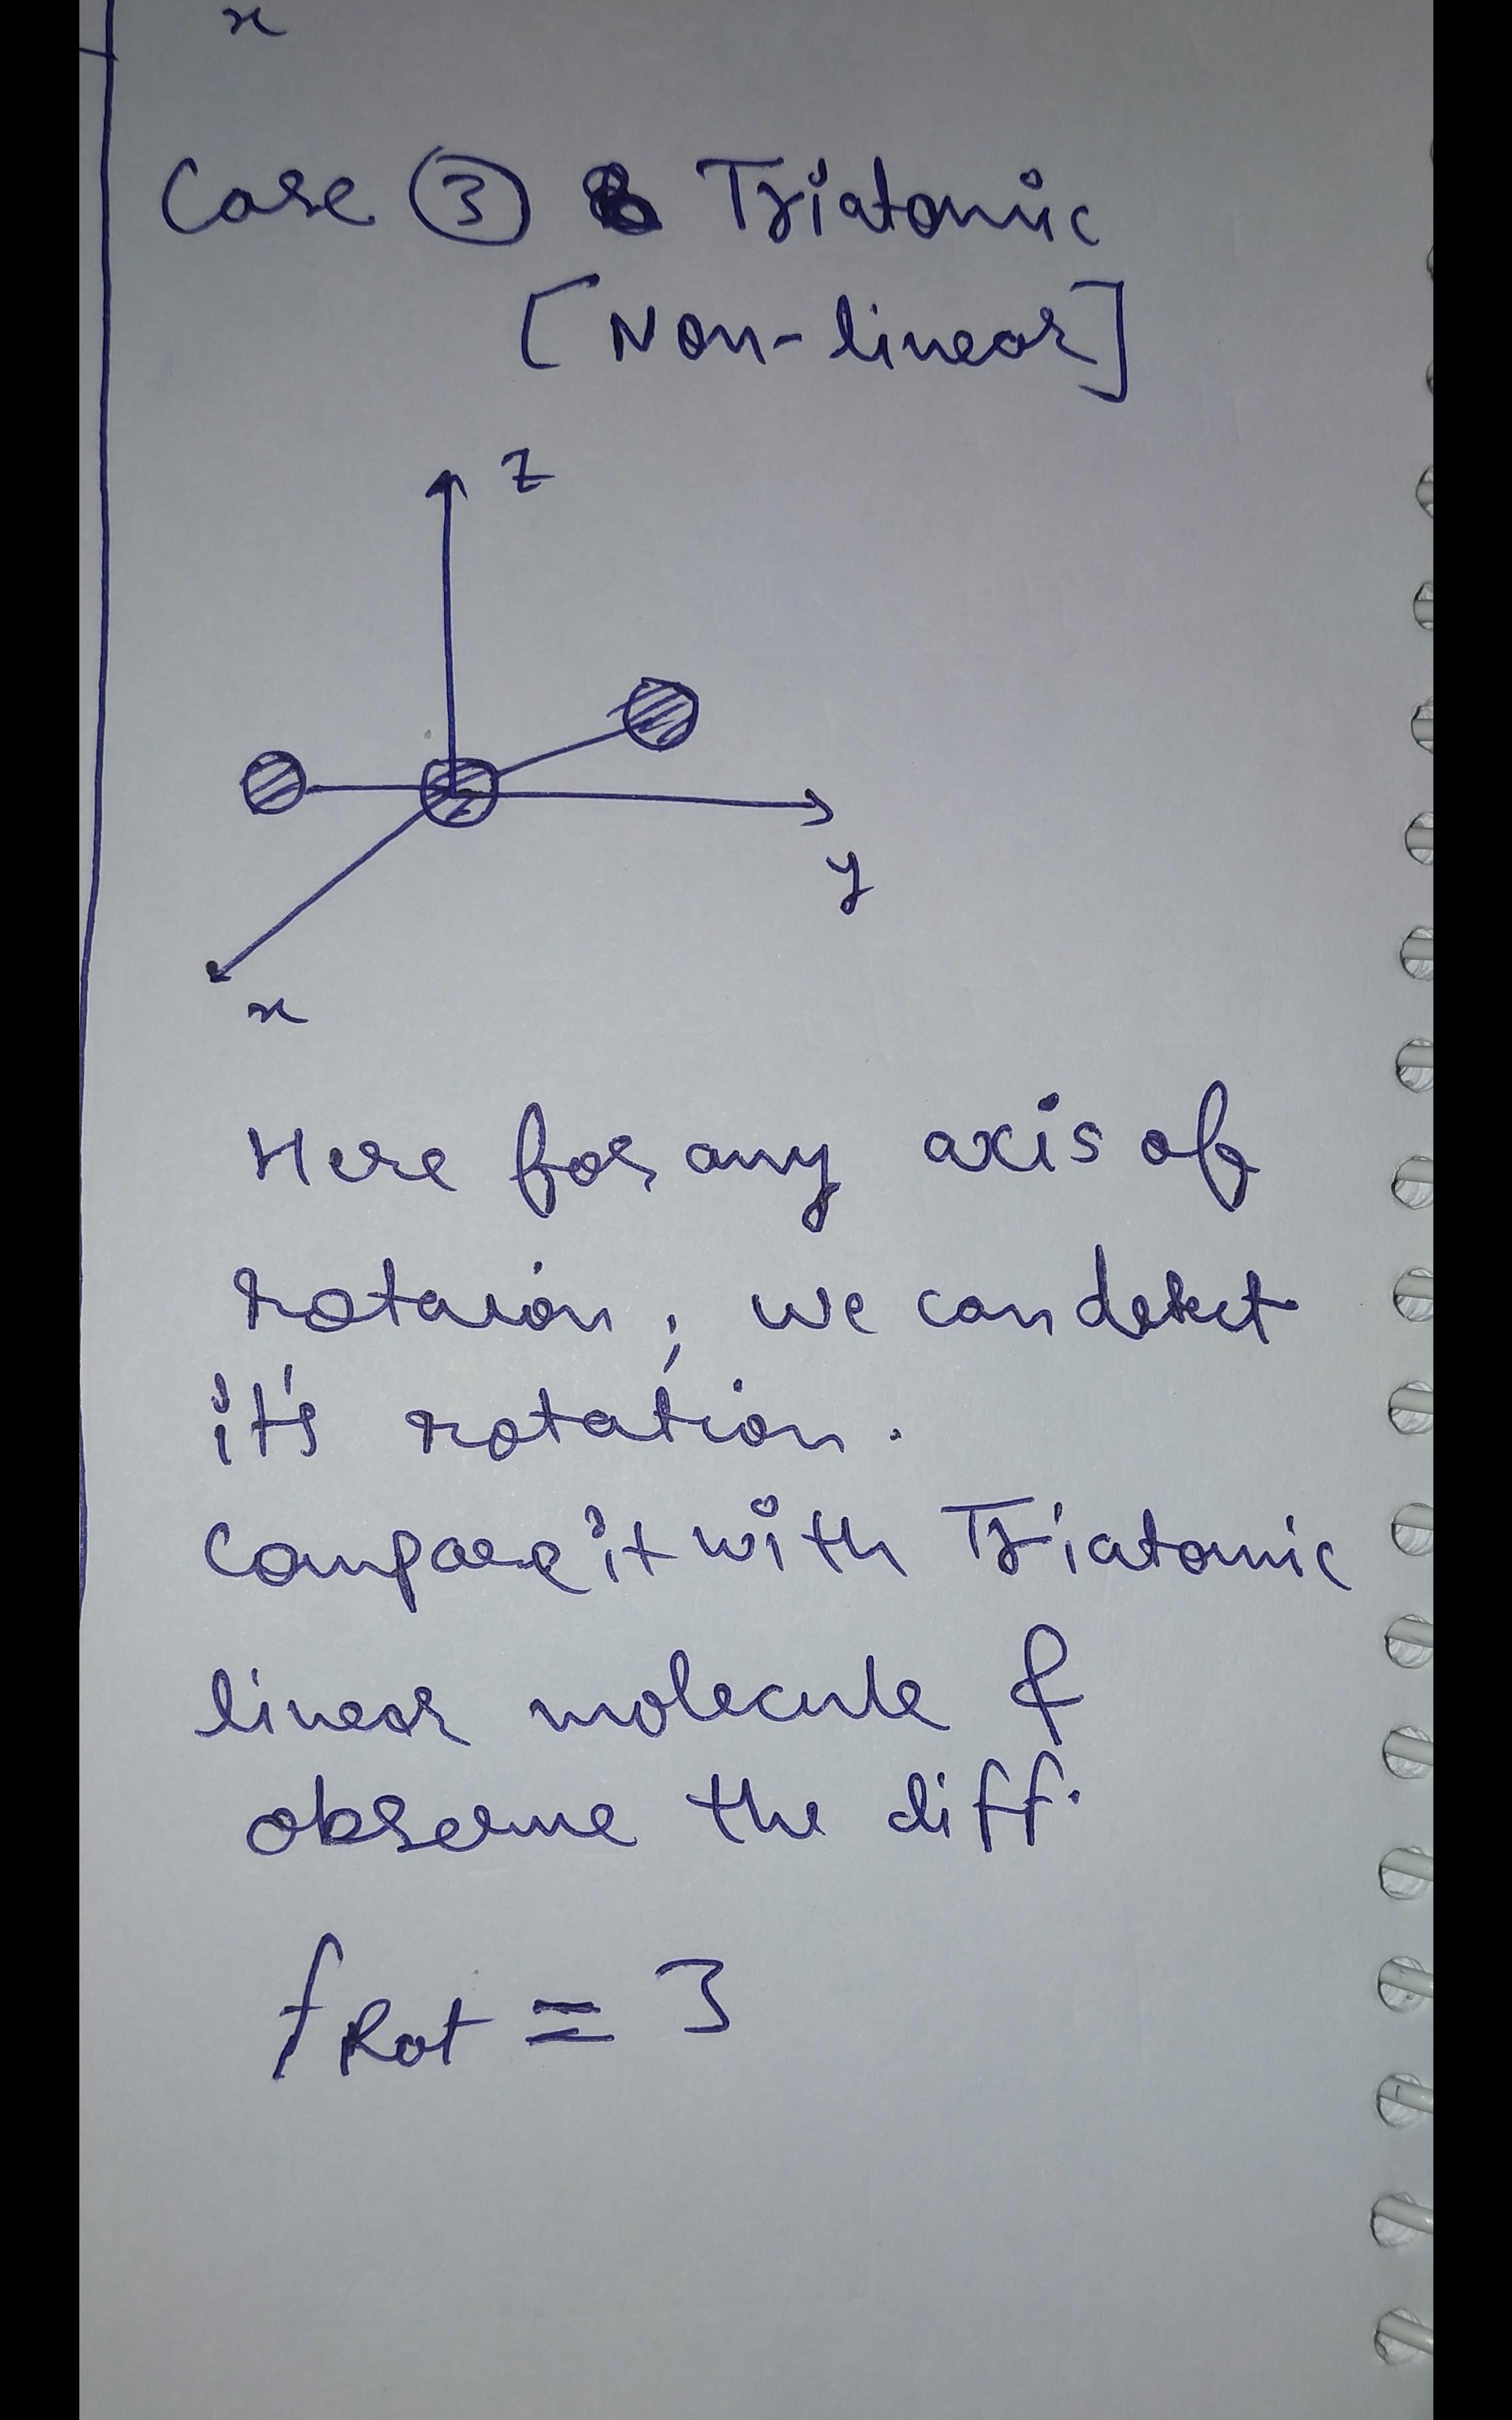 x
Case ③ Triatomic
[Non-linear]
z
y
x
Here for any axis of
rotaion, we can detect
it's rotation.
Compare it with Triatomic
linear molecule &
observe the diff.
fRot = 3